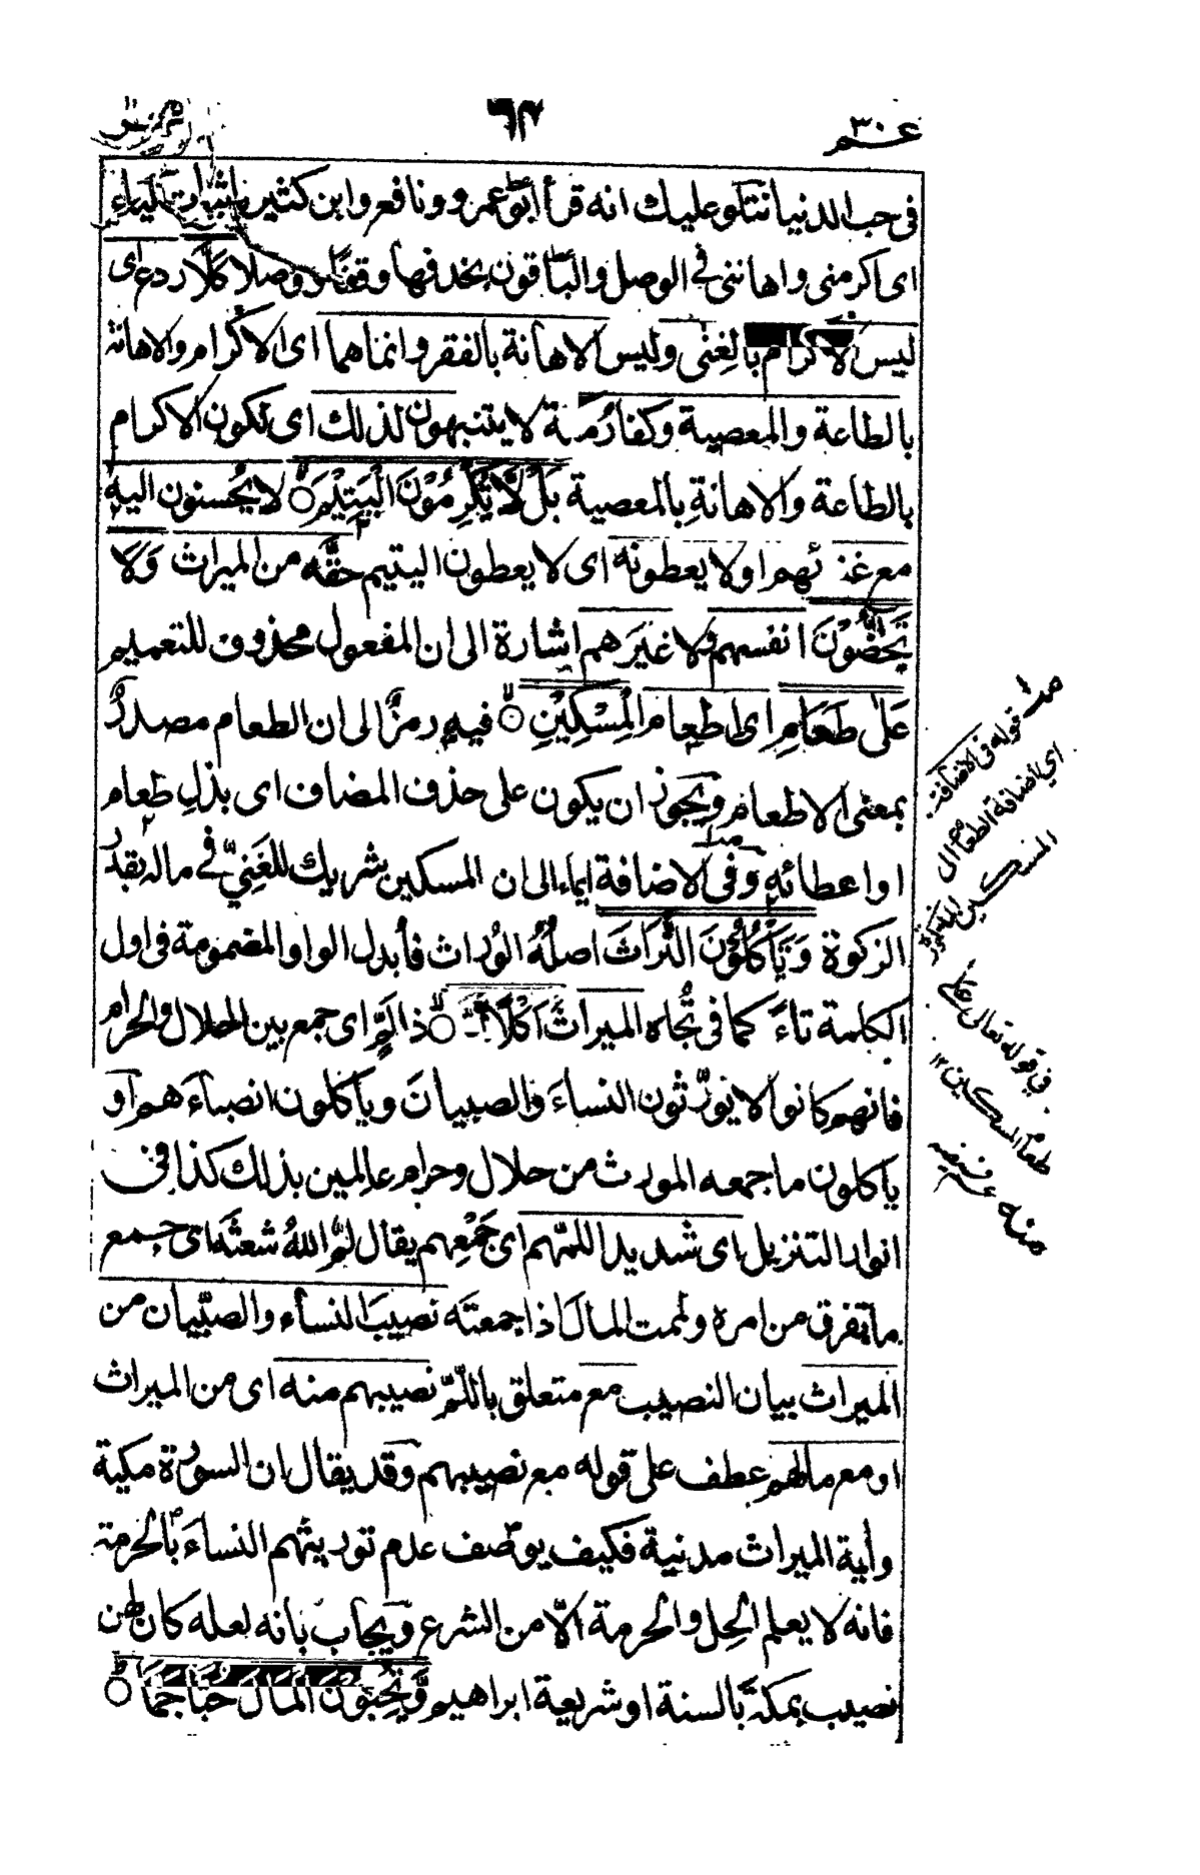 عم ٣٠
٦٣
فى حب الدنيا نتلو عليك انه قرأ ابو عمرو ونافع وابن كثير باثبات الياء
اى اكرمنى واهاننى فى الوصل والباقون بحذفها وقفا ووصلا كَلَّا ردع اى
ليس الاكرام بالغِنٰى وليس الاهانة بالفقر وانما هما اى الاكرام والاهانة
بالطاعة والمعصية وكفار مكة لا يتنبهون لذلك اى لكون الاكرام
بالطاعة والاهانةِ بالمعصية بَلْ لَّا تُكْرِمُوْنَ الْيَتِيْمَ لا يحسنون اليه
مع غنائهم او لا يعطونه اى لا يعطون اليتيم حقَّه من الميراث وَلَا
تَحٰٓضُّوْنَ انفسهم ولا غيرَهم اشارة الى ان المفعول محذوف للتعميم
عَلٰى طَعَامِ اى اطعام الْمِسْكِيْنِ فيه رمزٌ الى ان الطعام مصدرٌ
بمعنى الاطعام ويجوز ان يكون على حذف المضاف اى بذلِ طعام
او اعطائه وفى الاضافة ايماء الى ان المسكين شريك للغَنِيِّ فى ماله بقدر
الزكوة وَتَأْكُلُوْنَ التُّرَاثَ اصلُهُ الوُراث فأبدل الواو المضمومة فى اول
الكلمة تاءً كما فى تُجاه الميراثَ اَكْلًا لَّمًّا ذا لَمٍّ اى جمع بين الحلال والحرام
فانهم كانوا لا يورّثون النساءَ والصبيانَ وياكلون انصباءَهم او
ياكلون ما جمعه المورث من حلال وحرام عالمين بذلك كذا فى
انوار التنزيل اى شديدا للمّهم اى جَمْعِهم يقال لَمَّ اللهُ شعثَه اى جمع
ما تفرق من امره ولممت المالَ اذا جمعتَه نصيبَ النساء والصبيان من
الميراث بيان النصيب مع متعلق باللمّ نصيبهم منه اى من الميراث
او مع مالهم عطف على قوله مع نصيبهم وقد يقال ان السورة مكية
وأية الميراث مدنية فكيف يوصف عدم توريثهم النساءَ بالحرمة
فانه لا يعلم الحِل والحرمة الّا من الشرع ويجاب بانه لعله كان لهن
نصيب بمكة بالسنة او شريعة ابراهيم وَّتُحِبُّوْنَ الْمَالَ حُبًّا جَمًّا
قوله فى الاضافة
اي اضافة الطعام الى
المسكين
في قوله تعالى على
طعام المسكين ١٢
منه